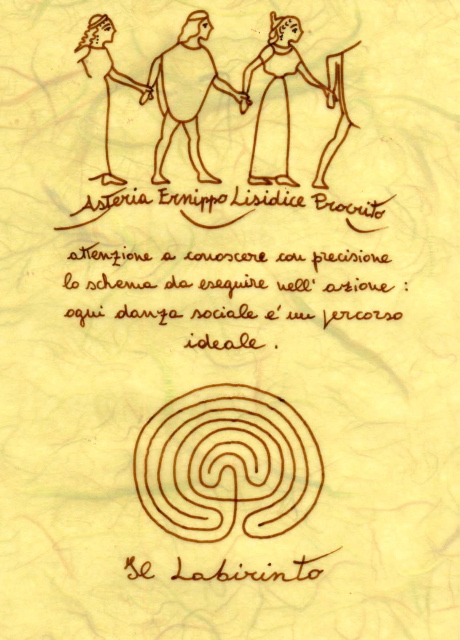 Asteria Ernippo Lisidice Procrito
attenzione a conoscere con precisione
lo schema da eseguire nell' azione :
ogni danza sociale e' un percorso
ideale .
Il Labirinto